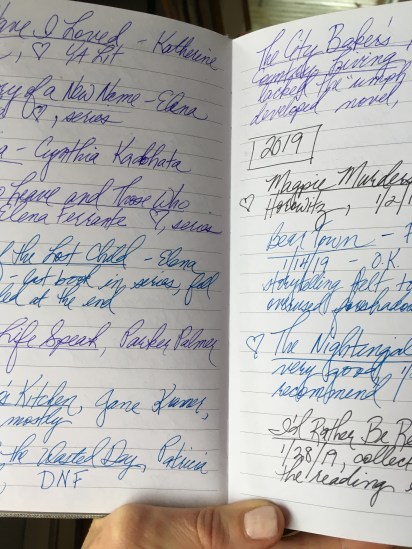 I Loved - Katherine
, ♡ YA Lit
of a New Name - Elena
♡, series
- Cynthia Kadohata
Leave and Those Who
Elena Ferrante ♡, series
the Lost Child - Elena
- last book in series, fell
at the end
Life Speak, Parker Palmer
Kitchen, Jane
mostly
the Wasted Day, Patricia
DNF
The City Baker's
Country Living
lacked the "umph"
developed novel,
2019
Magpie Murders
♡ Horowitz, 1/2/1
Bear Town - F
1/14/19 - O.K.
storytelling felt to
overused foreshado
♡ The Nightingal
very good 1/
recommend
I'd Rather Be Re
1/28/19, collect
the reading